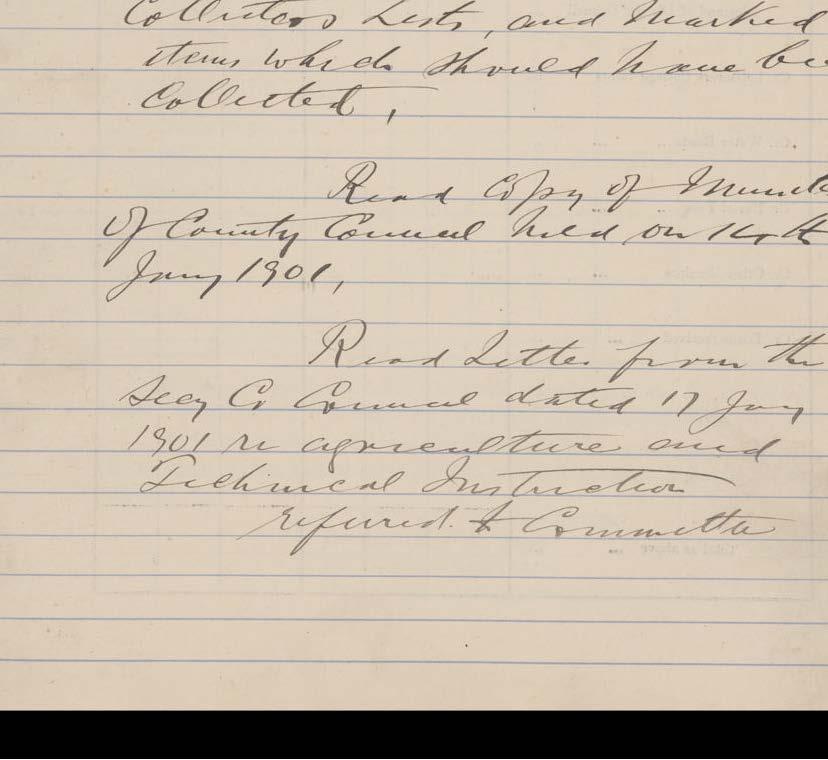 Collectors Lists, and Marked
items which should have be
Collected,
Read Copy of Minute
of County Council held on 14th
Jany 1901,
Read Letter from the
Secy Co Council dated 17 Jany
1901 re agriculture and
Technical Instruction
referred to Committee